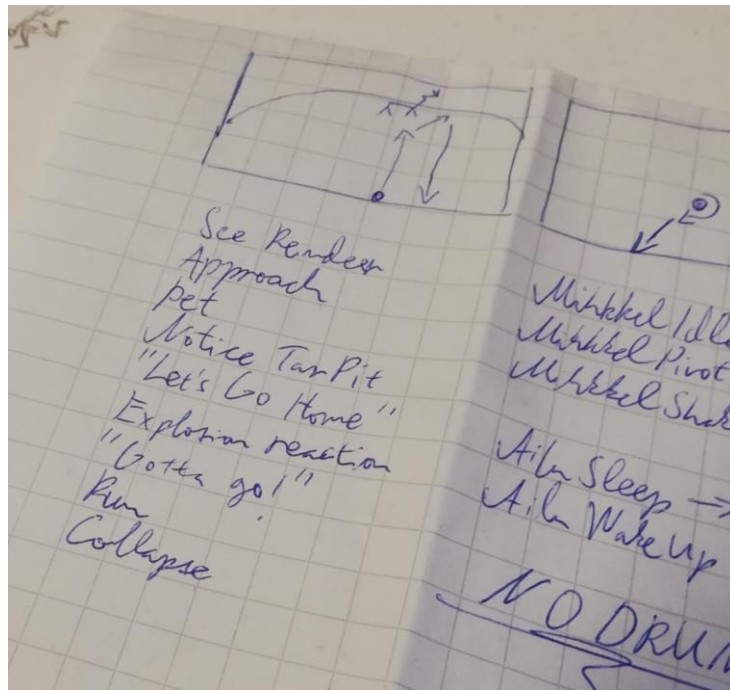 See Rendeer
Approach
Pet
Notice Tar Pit
"Let's Go Home"
Explosion reaction
"Gotta go!"
Run
Collapse
Mihkkel Idle
Mihkkel Pivot
Mihkkel
Aila Sleep →
Aila Wake Up
NO DRUM